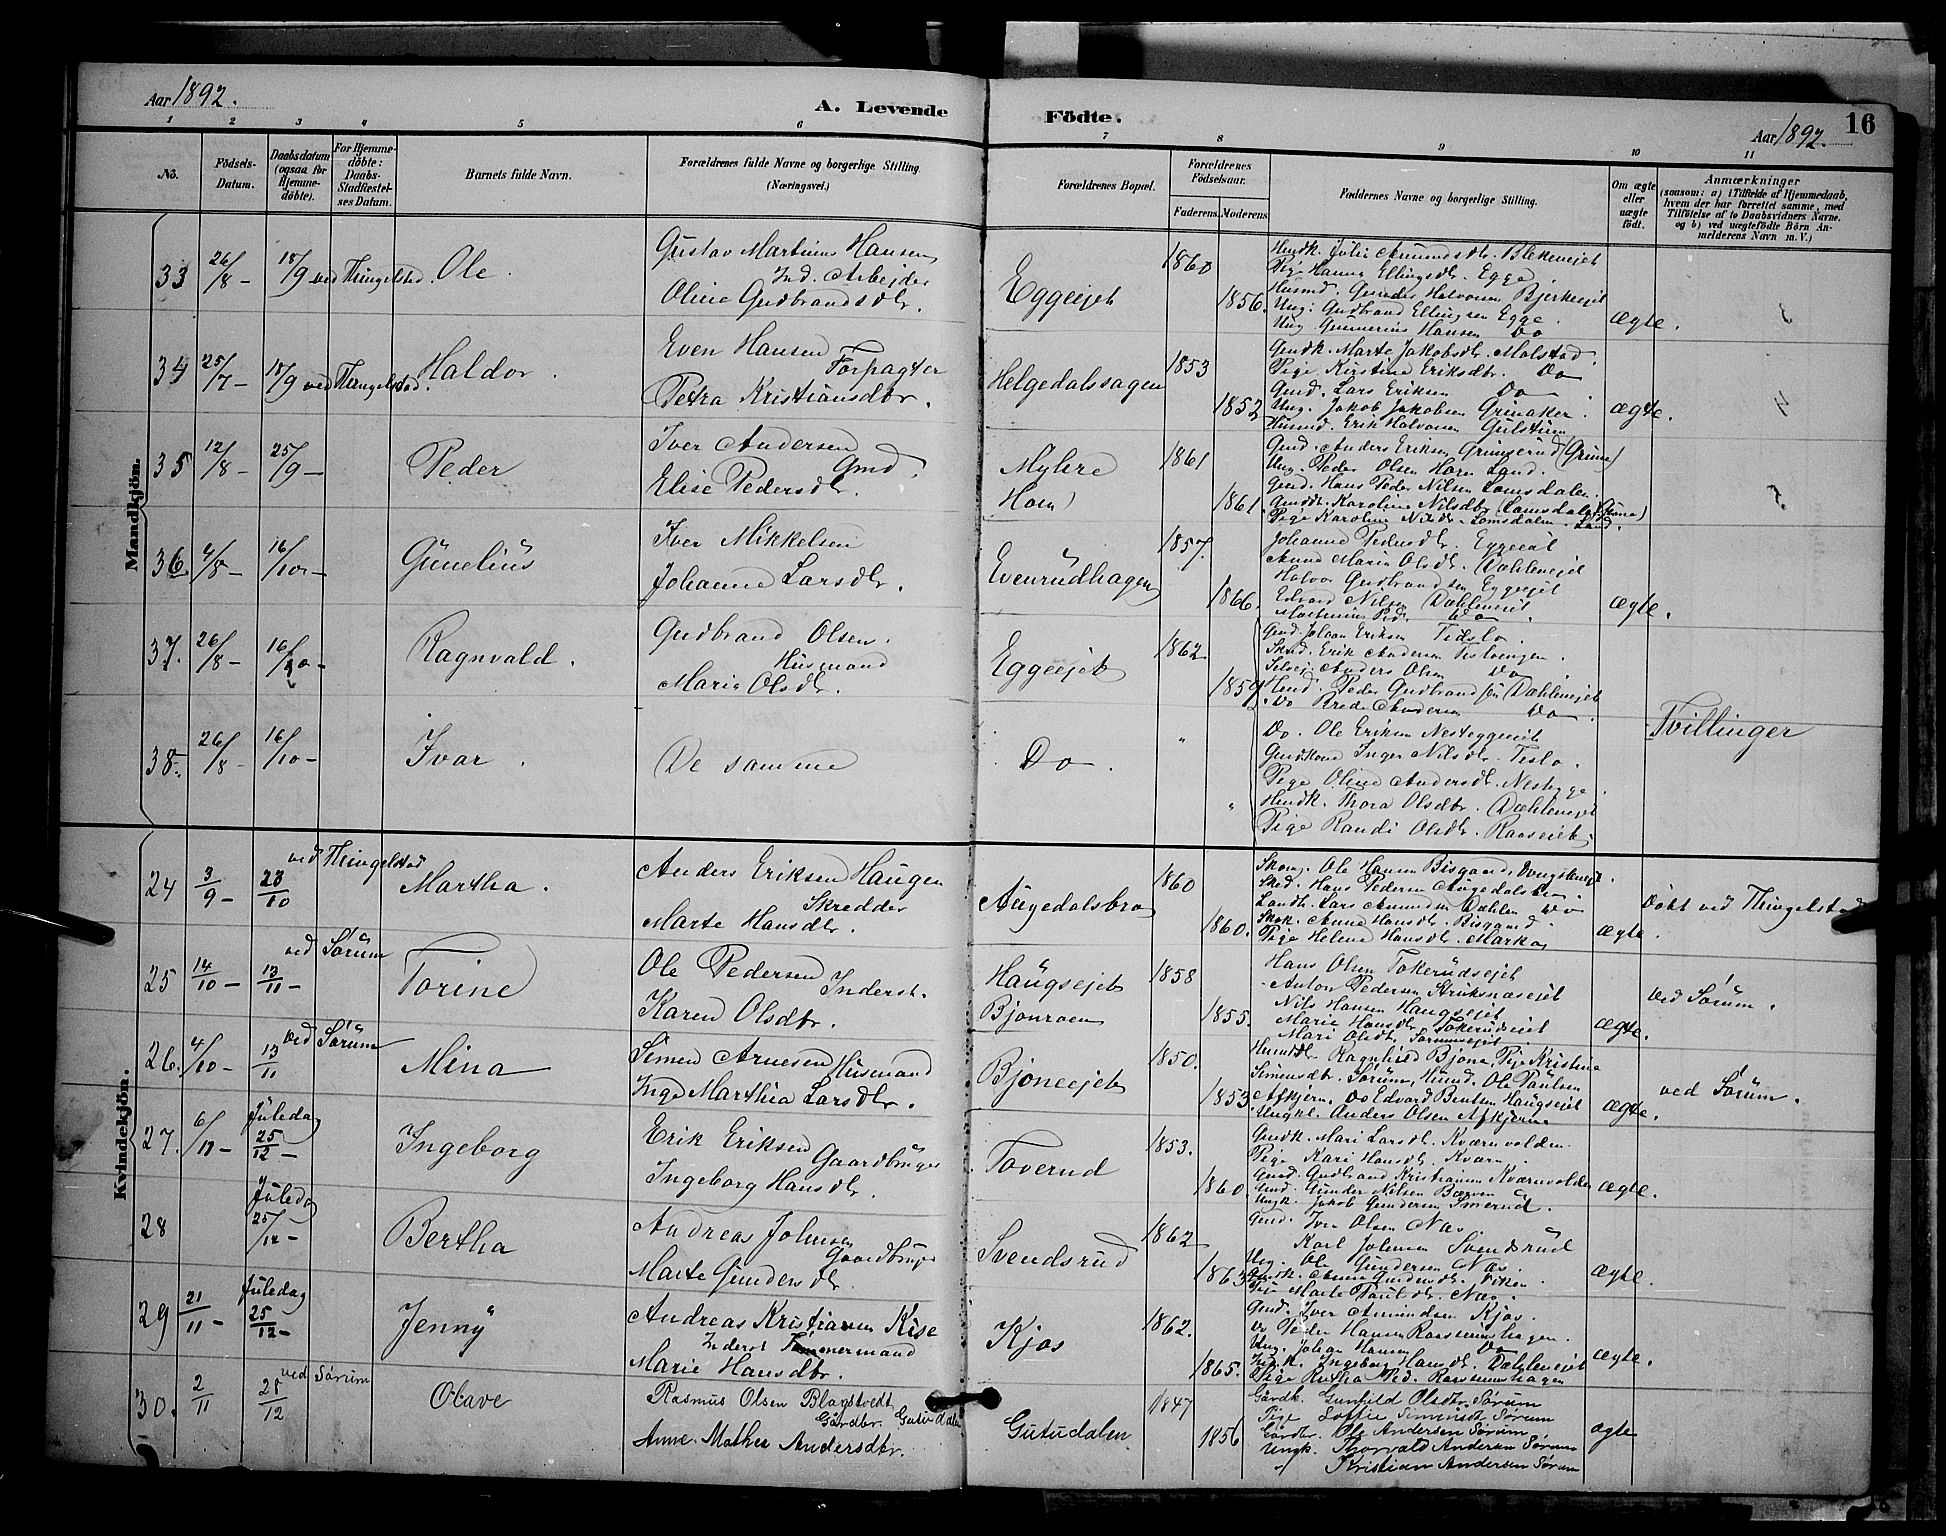 Aar 1892.
A. Levende
Födte.
Aar 1892.
16
1 2 3 4 5 6 7 8 9 10 11
No.
Födsels-Datum.
Daabsdatum (ogsaa for Hjemme-döbte).
For Hjemme-döbte: Daabs-Stadfæstel-ses Datum.
Barnets fulde Navn.
Forældrenes fulde Navne og borgerlige Stilling. (Næringsvei.)
Forældrenes Bopæl.
Forældrenes Födselsaar.
Faderens. Moderens.
Faddernes Navne og borgerlige Stilling.
Om ægte eller uægte födt.
Anmærkninger
(saasom: a) i Tilfælde af Hjemmedaab, hvem der har forrettet samme, med Tilföielse af to Daabsvidners Navne. og b) ved uægtefödte Börn An-melderens Navn m. V.)
Mandkjön.
33 26/8 – 18/9 ved Thingelstad. Ole.
Gustav Martinius Hansen
Ind. Arbejder
Oline Gudbrandsdtr.
Eggeejet 1860 1856.
Pige Hanna Ellingsdtr. Egge.
Husmd. Gunder Halvorsen Bjerkeejet
Ung. Gudbrand Ellingsen Egge.
Ung. Gunnerius Hansen Do
ægte.
3
34 25/7 – 18/9 ved Thingelstad. Haldor.
Even Hansen
Forpagter
Petra Kristiansdtr.
Helgedalssagen 1853 1852
Gmdk. Marte Jakobsdtr. Molstad.
Pige Kirstine Eriksdtr. Do
Gmd. Lars Eriksen Do
Ung. Jakob Jakobsen Grinaker.
Husmd. Erik Halvorsen Gulstuen
ægte.
4
35 12/8 – 25/9 – Peder
Iver Andersen
Gmd.
Elise Pedersdtr.
Myhre
Horn) 1861 1861.
Gmd. Anders Eriksen Grimserud (Grime)
Ung. Peder Olsen Horn Land.
Gmd. Hans Peder Nilsen Lomsdalen.
Gmdk. Karoline Nilsdtr. (Lomsdalen)
Pige Karoline Nilsdtr. Lomsdalen
5
36 4/8 – 16/10 – Gunelius
Iver Mikkelsen
Johanne Larsdtr.
Evenrudhagen 1857. 1866.
Johanne Pedersdtr. Eggeejet
Anne Marie Olsdtr. Dæhleneiet
Halvor Gudbrandsen Eggeejet
Edvard Nilsen Dæhleneiet
ægte.
37. 26/8 – 16/10 – Ragnvald.
Gudbrand Olsen.
Husmand
Marie Olsdtr.
Eggeejet 1862. 1859.
Gmd. Johan Eriksen Tidslo.
Skmd. Erik Andersen Tesloengen.
Selvej. Anders Olsen Do
Hmd. Peder Gudbrandsen Dæhleneiet
Do Peder Andersen Do
38. 26/8 – 16/10 – Ivar.
De samme
Do.
"
"
Do. Ole Eriksen Nesteggeeiet
Gmdkone Inger Nilsdtr. Teslo.
Pige Oline Andersdtr. Nesegge.
Hmdk. Thora Olsdtr. Dæhleneiet
Pige Randi Olsdtr. Raaseiet
Tvillinger
Kvindekjön.
24 3/9 – 23/10 ved Thingelstad Martha.
Anders Eriksen Haugen
Skredder
Marte Hansdtr.
Augedalsbro 1860 1860.
Skmd. Hans Pedersen Augedalsbro
Landh. Lars Amundsen Dæhlen Do
Skmk. Anne Hansdtr. Bisgaard
Pige Helene Hansdtr. Marka
ægte.
Döbt ved Thingelstad
25 14/10 – 13/11 – ved Sörum Torine
Ole Pedersen
Inderst.
Karen Olsdtr.
Haugsejet
Bjonroen 1858 1855.
Hans Olsen Tokerudsejet
Anton Pedersen Struksnæsejet
Nils Hansen Haugsejet
Marie Hansdtr. Tokerudseiet
Mari Olsdtr. Sörumsejet
ægte.
ved Sörum.
26. 4/10 – 13/11 ved Sörum Mina
Simen Arnesen Husmand
Inge Marthia Larsdtr.
Bjoneejet 1850. 1853
Husmdk. Ragnhild Bjone, Pige Kristine
Simensdtr. Sörum, Husmd. Ole Paulsen
Afkjern. Do Edvard Bentsen Haugsejet
Ungkl. Anders Olsen Afkjerne
ægte.
ved Sörum.
27. 6/11 – Juledag 25/12 – Ingeborg
Erik Eriksen
Gaardbruger
Ingeborg Hansdtr.
Toverud 1853. 1860
Gmdk. Mari Larsdtr. Kværnvolden.
Pige Kari Hansdtr. Kværn
Gmd. Gudbrand Kristiansen Kværnvolden
Gmd. Gunder Nilsen Bærven
Ungk. Jakob Gundersen Smerud.
ægte.
28 Juledag 25/12 – Bertha
Andreas Johnsen
Gaardbruger
Marte Gundersdtr.
Svendsrud 1862 1863
Gmd. Iver Olsen Næs
Karl Johnsen Svendsrud
Ung. Ole Gundersen Næs.
Gmdk. Anne Gundersdtr. Viken.
Pige Marte Paulsdtr. Næs.
ægte.
29 21/11 – Juledag 25/12 – Jenny
Andreas Kristiansen Kise
Inderst Tömmermand
Marie Hansdtr.
Kjos 1862. 1865.
Gmd. Iver Amundsen Kjos.
Do Peder Hansen Raassumshagen.
Ung. Johan Hansen Do
Ingeborg Hansdtr. Dæhleneiet
Pige Ruthea Ped. Raassumshagen
ægte.
30. 2/11 28/12 ved Sörum Olave
Rasmus Olsen Blegstvedt
Gårdbr. Gutudalen
Anne Mathea Andersdtr.
Gutudalen 1847 1856
Gårdk. Gunhild Olsdtr. Sörum
Pige Sofie Simensdtr Sörum
Gårdbr. Ole Andersen Sörum
Ungk. Thorvald Andersen Sörum
" Kristian Andersen Sörum
ægte